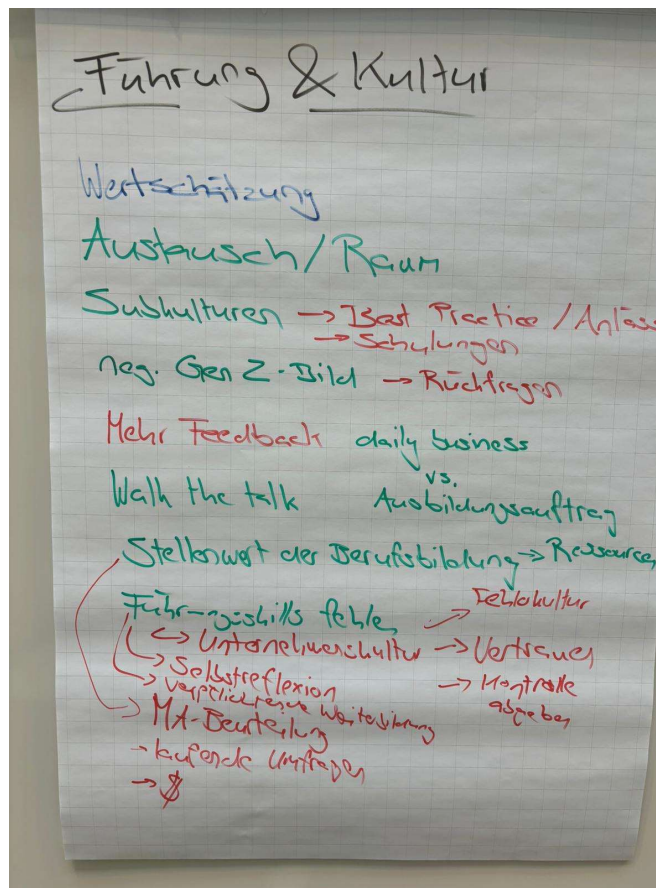 Führung & Kultur
Wertschätzung
Austausch / Raum
Subkulturen → Best Practice / Anläss
→ Schulungen
neg. Gen Z-Bild → Rückfragen
Mehr Feedback daily business
vs.
Walk the talk Ausbildungsauftrag
Stellenwert der Berufsbildung → Ressourcen
Führungsskills fehlen → Fehlerkultur
↔ Unternehmenskultur → Vertrauen
→ Selbstreflexion → Kontrolle
→ verpflichtende Weiterbildung abgeben
→ MA-Beurteilung
→ laufende Umfragen
→ $